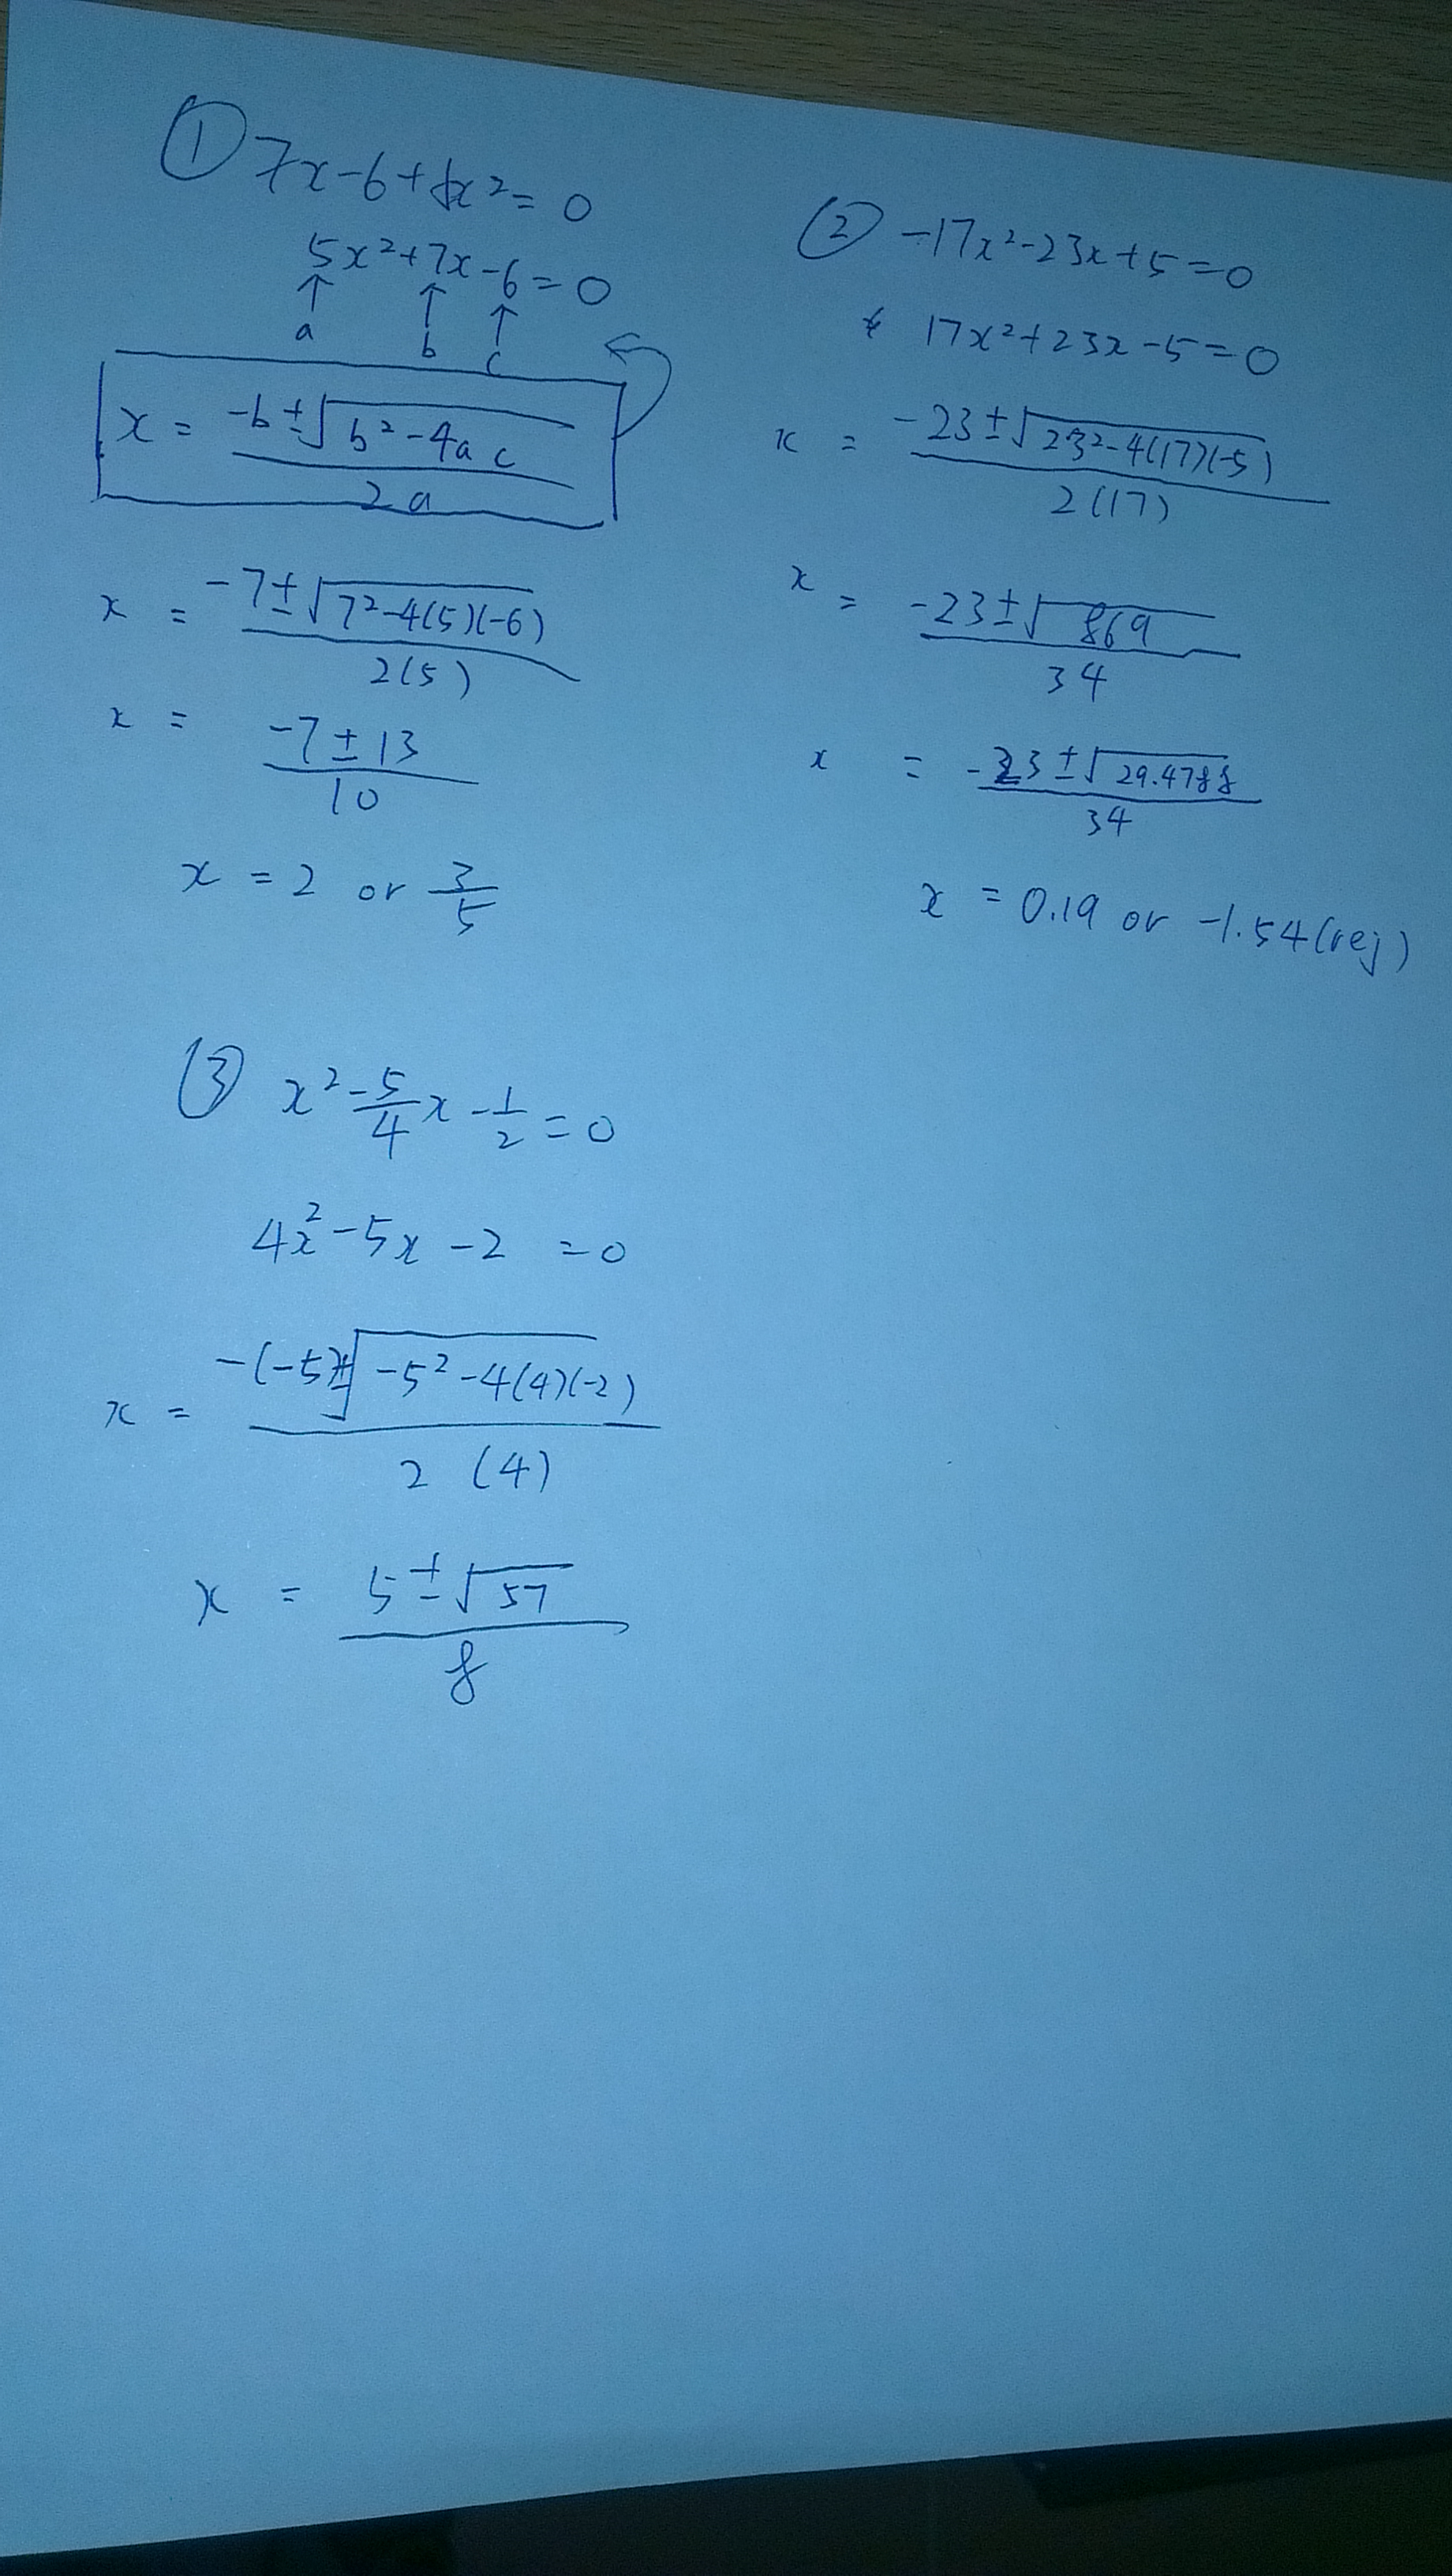 ① 7x-6+5x²=0
5x²+7x-6=0
↑ ↑ ↑
a b c
x = (-b±√(b²-4ac))/(2a)
x = (-7±√(7²-4(5)(-6)))/(2(5))
x = (-7±13)/10
x = 2 or 3/5
② -17x²-23x+5=0
17x²+23x-5=0
x = (-23±√(23²-4(17)(-5)))/(2(17))
x = (-23±√869)/34
x = (-23±√29.4788)/34
x = 0.19 or -1.54(rej)
③ x²-5/4x-1/2=0
4x²-5x-2=0
x = (-(-5)±√(-5²-4(4)(-2)))/(2(4))
x = (5±√57)/8